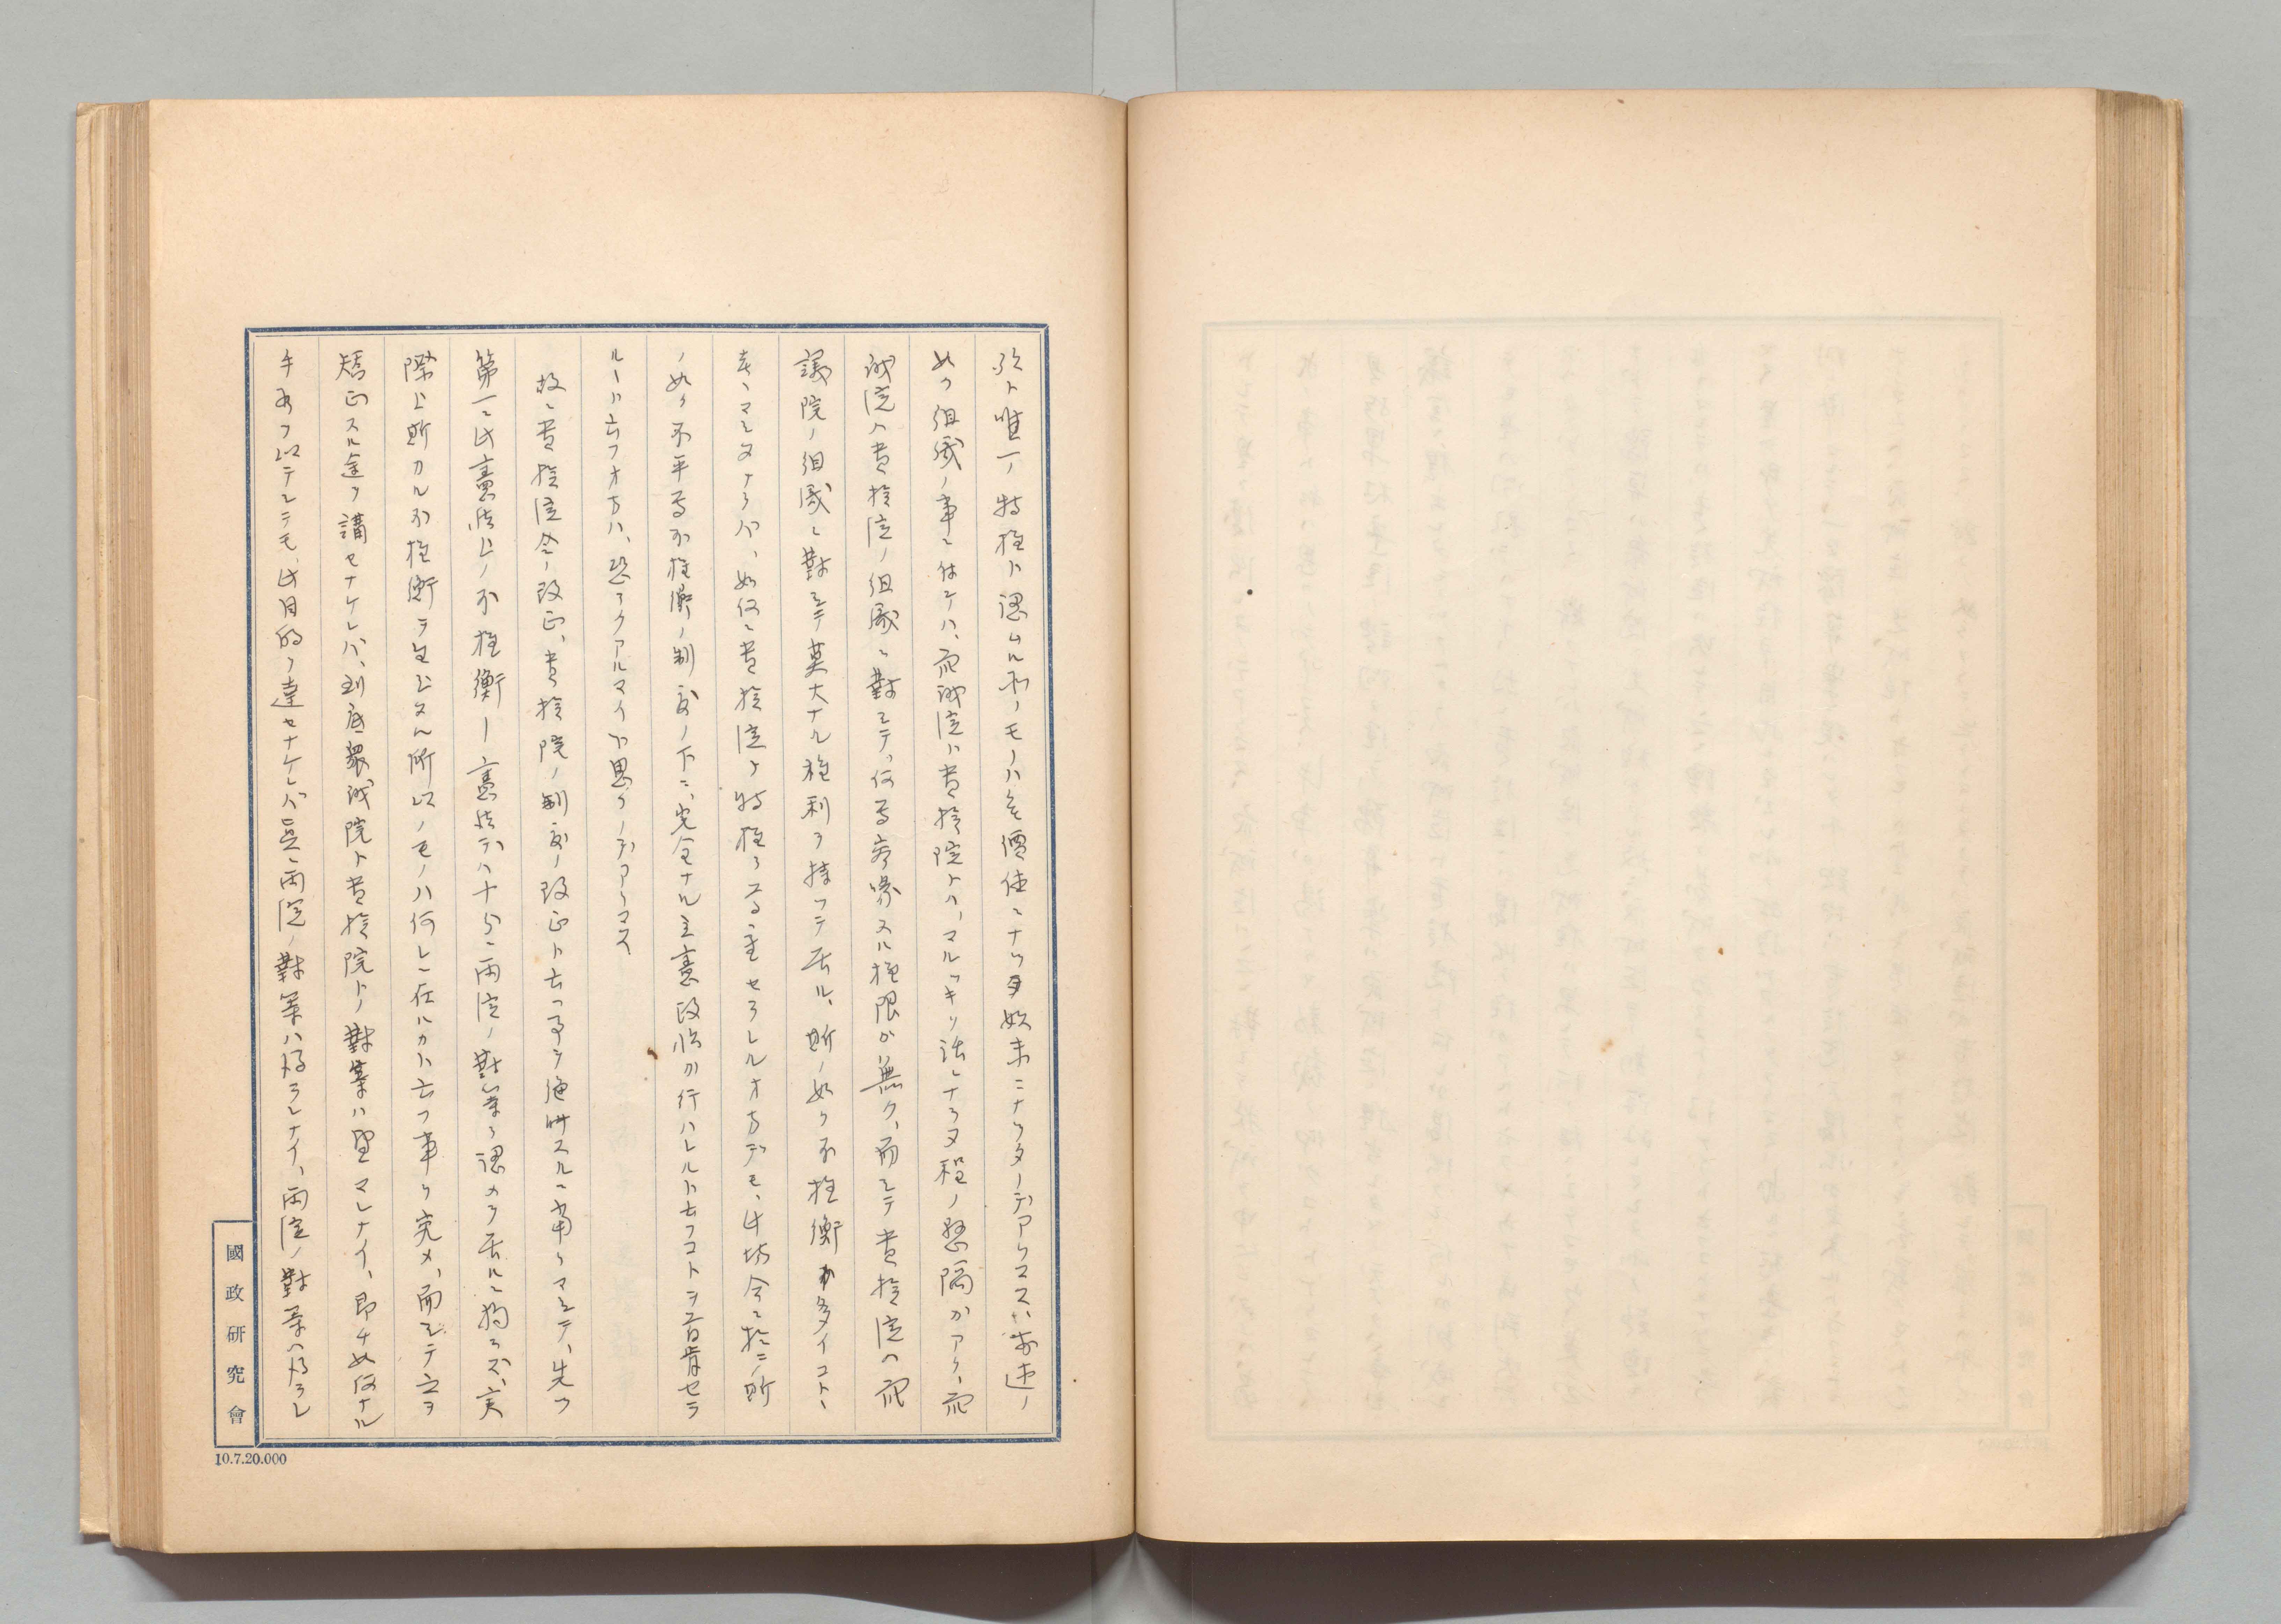 殆ト唯一ノ特権ト認ムル所ノモノハ無價値ニナツタ始末ニナツタノデアリマス、前述ノ
如ク組織ノ事ニ付テハ、衆議院ハ貴族院トハ、マルツキリ話シナラヌ程ノ懸隔ガアリ、衆
議院ハ貴族院ノ組織ニ對シテ、何等容喙スル権限ガ無ク、而シテ貴族院ハ衆
議院ノ組織ニ對シテ莫大ナル権利ヲ持ツテ居ル、斯ノ如ク不権衡ガ多イコト、
考ヘマシタナラバ、如何ニ貴族院ノ特権ヲ尊重セラレルオ方デモ、此場合ニ於テ斯
ノ如ク不平等不権衡ノ制度ノ下ニ、完全ナル立憲政治ガ行ハレルト云フコトヲ首肯セラ
ルヽト云フオ方ハ、恐ラクアルマイト思フノデアリマス
故ニ貴族院令ノ改正、貴族院ノ制度ノ改正ト云フ事ヲ論辯スルニ當リマシテ、先ヅ
第一ニ此憲法上ノ不権衡ー憲法デハ十分ニ両院ノ對等ヲ認メテ居ルニ拘ラズ、実
際上斯カル不権衡ヲ生ジタル所以ノモノハ何レニ在ルカト云フ事ヲ究メ、而シテ之ヲ
矯正スル途ヲ講セナケレバ、到底衆議院ト貴族院トノ對等ハ望マレナイ、即チ如何ナル
手段ヲ以テシテモ、此目的ヲ達セナケレバ真ニ両院ノ對等ハ得ラレナイ、両院ノ對等ハ得ラレ
國政研究會
10.7.20.000